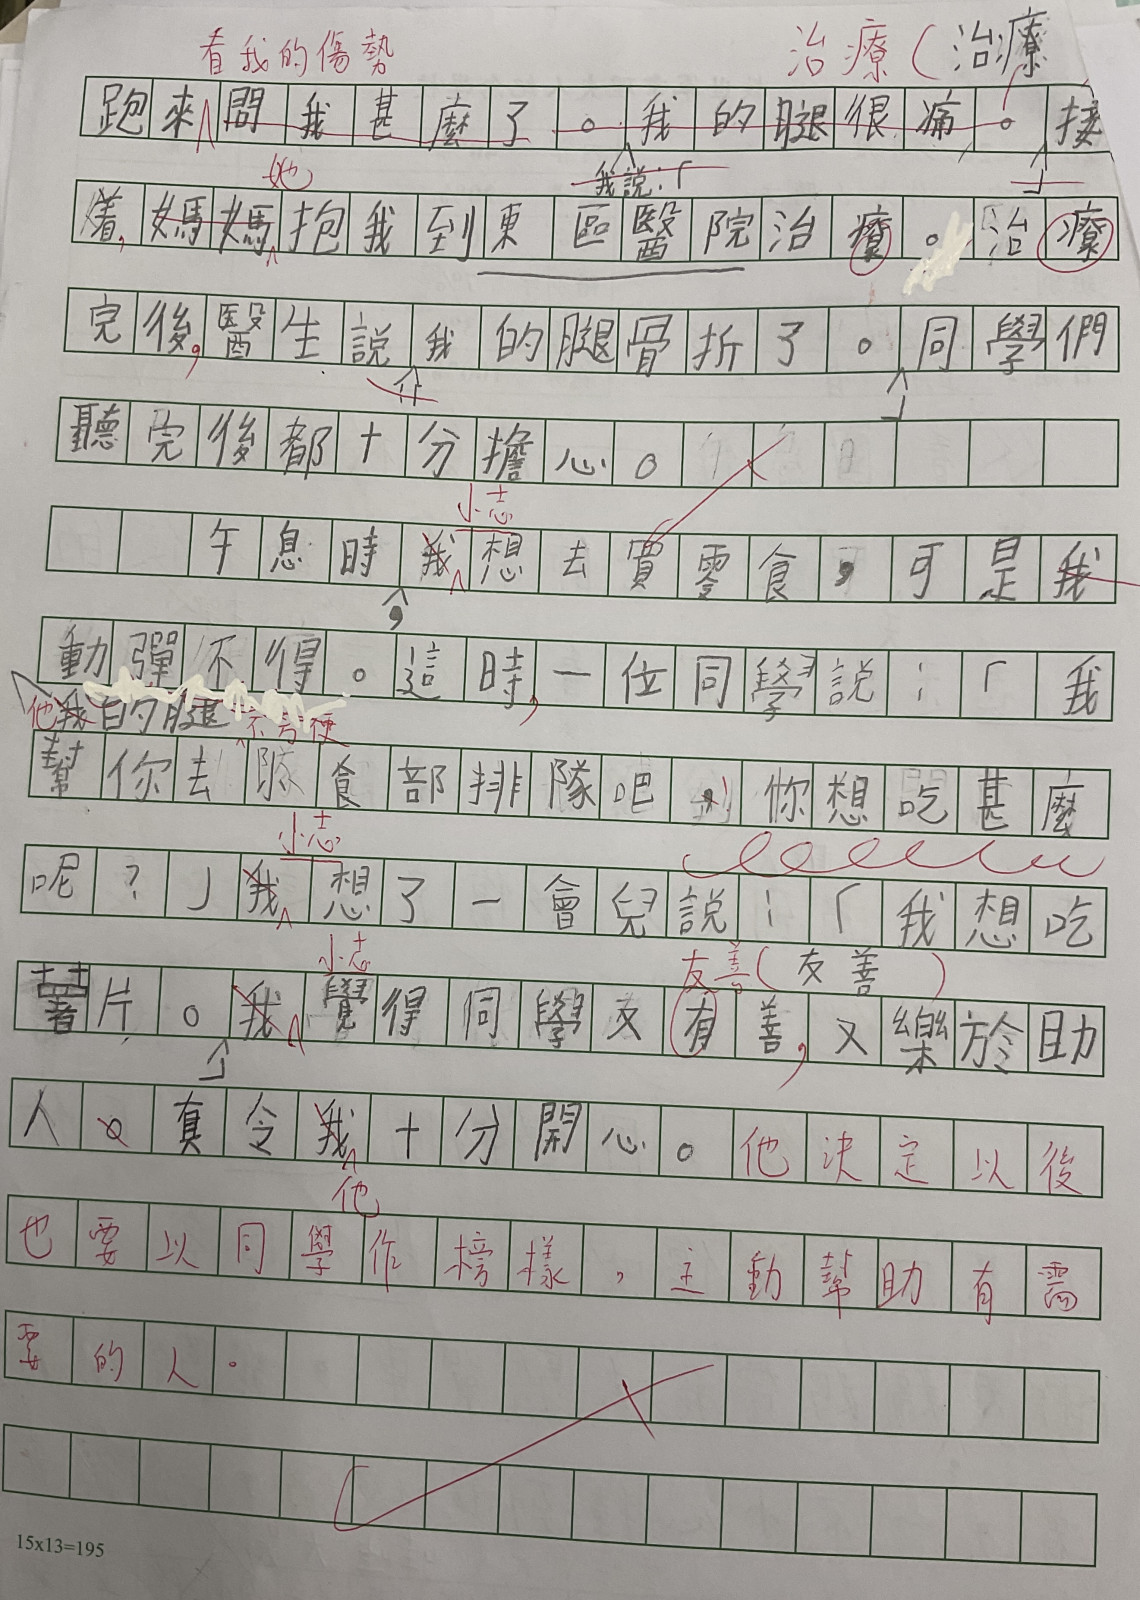 看我的傷勢 治療(治療
跑來問我甚麼了。我的腿很痛。接
她 我說:「 」
着,媽媽抱我到東區醫院治療。治療
完後,醫生說我的腿骨折了。同學們
」
聽完後都十分擔心。
小志
午息時我想去買零食,可是我
,
動彈不得。這時,一位同學說:「我
他我的腿不方便
幫你去隊食部排隊吧!你想吃甚麼
小志
呢?」我想了一會兒說:「我想吃
小志 友善(友善)
薯片。我覺得同學友有善,又樂於助
」
人。真令我十分開心。他決定以後
他
也要以同學作榜樣,主動幫助有需
要的人。
15x13=195